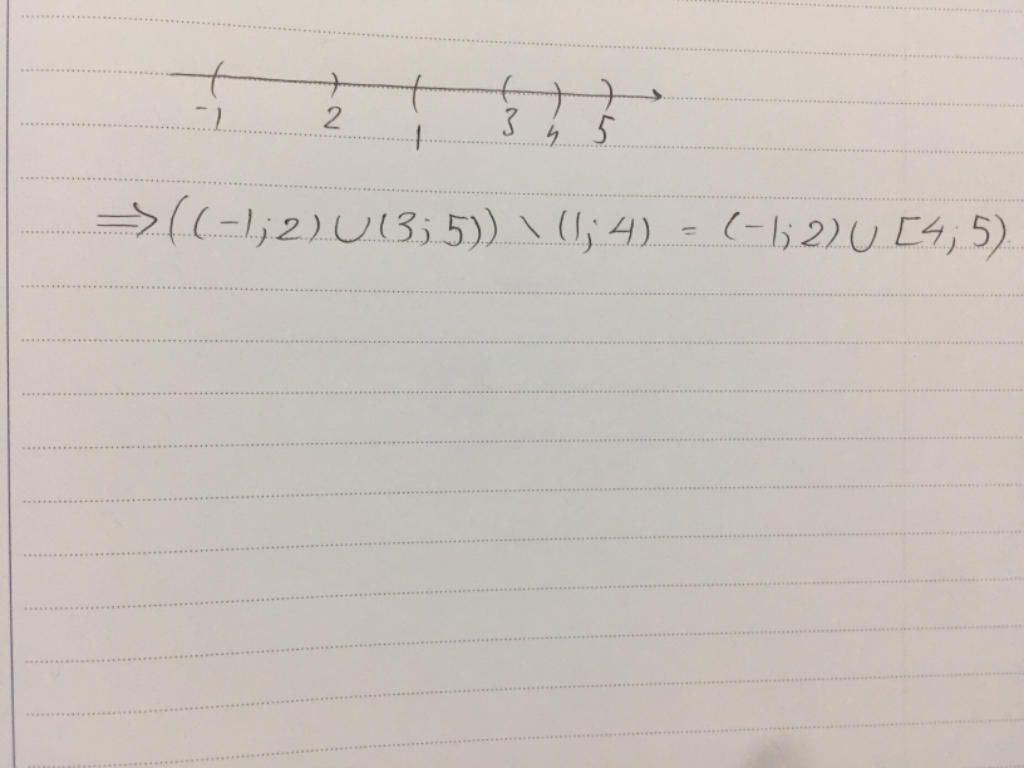 -1 2 1 3 4 5
⇒ ((-1; 2) ∪ (3; 5)) \ (1; 4) = (-1; 2) ∪ [4; 5)